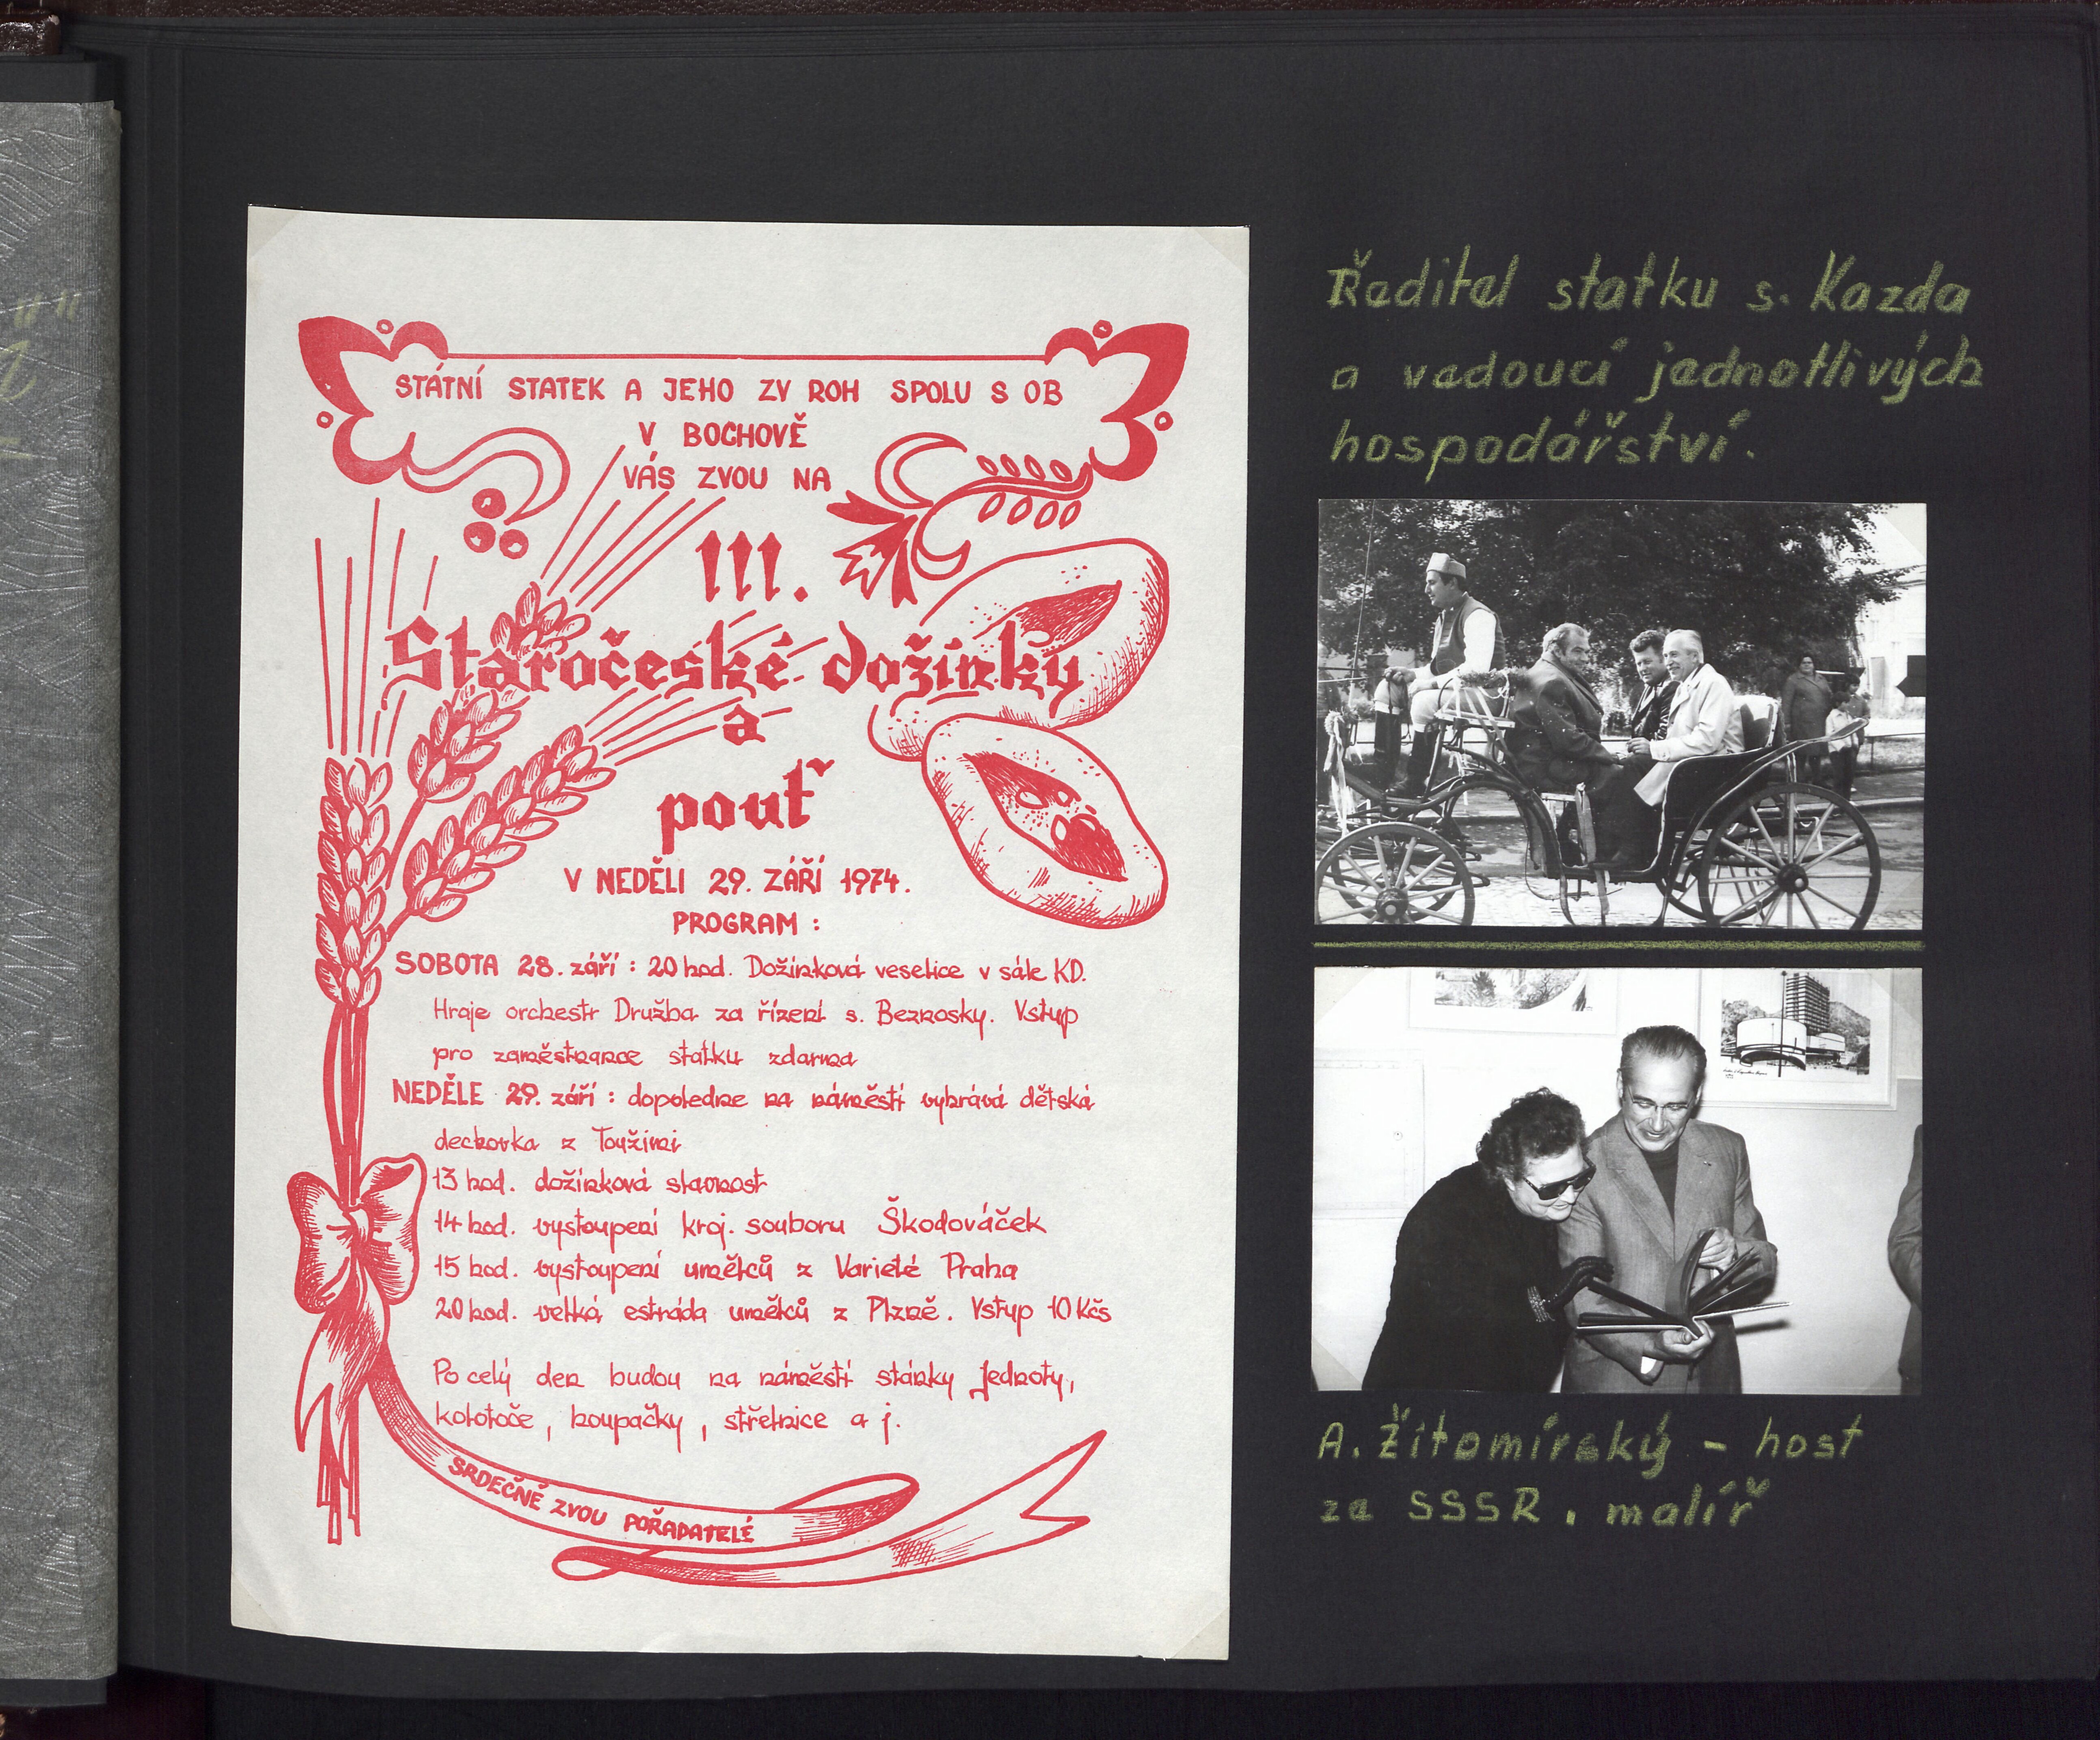 STÁTNÍ STATEK A JEHO ZV ROH SPOLU S OB
V BOCHOVĚ
VÁS ZVOU NA
III.
Staročeské dožínky
a
pouť
V NEDĚLI 29. ZÁŘÍ 1974.
PROGRAM :
SOBOTA 28. září : 20 hod. Dožínková veselice v sále KD.
Hraje orchestr Družba za řízení s. Beznosky. Vstup
pro zaměstnance statku zdarma
NEDĚLE 29. září : dopoledne na náměstí vyhrává dětská
dechovka z Toužimi
13 hod. dožínková slavnost
14 hod. vystoupení kroj. souboru Škodováček
15 hod. vystoupení umělců z Varieté Praha
20 hod. velká estráda umělců z Plzně. Vstup 10 Kčs
Po celý den budou na náměstí stánky Jednoty,
kolotoče, houpačky, střelnice a j.
SRDEČNĚ ZVOU POŘADATELÉ
Ředitel statku s. Kazda
a vedoucí jednotlivých
hospodářství.
A. Žitomírský - host
ze SSSR, malíř